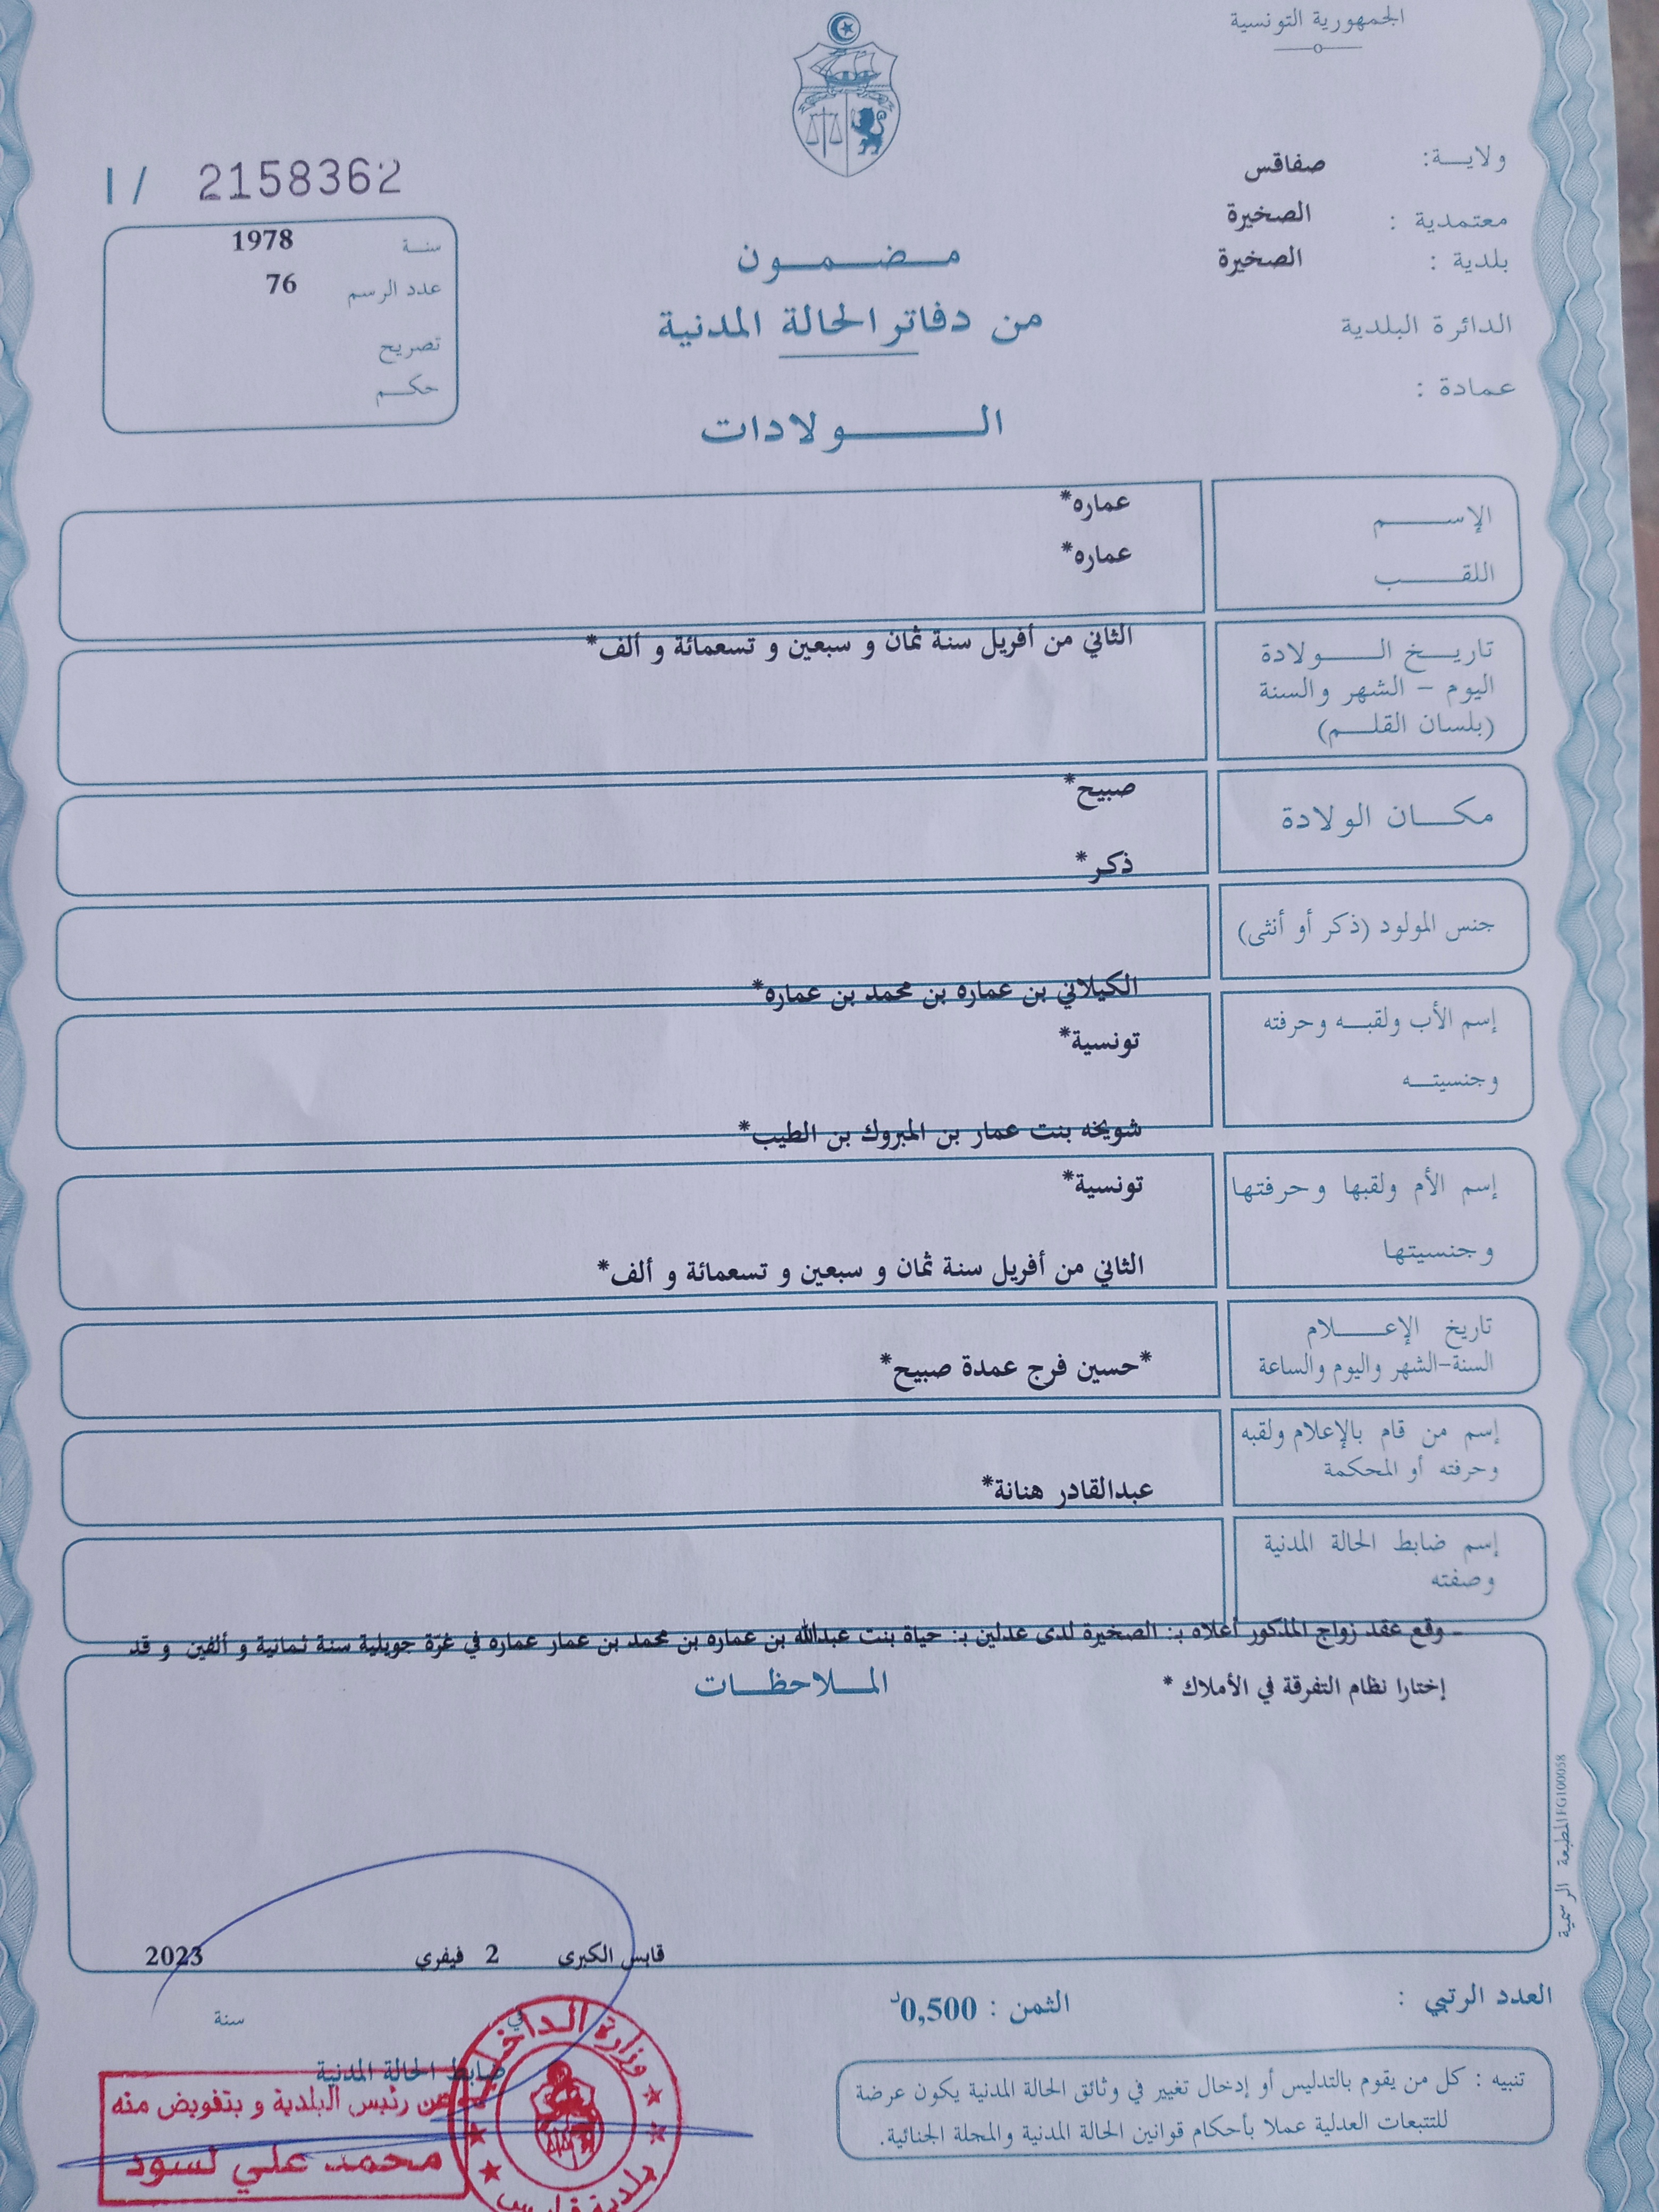 الجمهورية التونسية
ولاية: صفاقس
معتمدية : الصخيرة
بلدية : الصخيرة
الدائرة البلدية
عمادة :
I / 2158362
سنة 1978
عدد الرسم 76
تصريح
حكم
مضمون
من دفاتر الحالة المدنية
الولادات
الإسم عماره*
اللقب عماره*
تاريخ الولادة
اليوم - الشهر والسنة
(بلسان القلم)
الثاني من أفريل سنة ثمان و سبعين و تسعمائة و ألف*
مكان الولادة
صبيح*
ذكر*
جنس المولود (ذكر أو أنثى)
الكيلاني بن عماره بن محمد بن عماره*
إسم الأب ولقبه وحرفته
تونسية*
وجنسيته
شويخه بنت عمار بن المبروك بن الطيب*
إسم الأم ولقبها وحرفتها
تونسية*
وجنسيتها
الثاني من أفريل سنة ثمان و سبعين و تسعمائة و ألف*
تاريخ الإعلام
السنة-الشهر واليوم والساعة
*حسين فرج عمدة صبيح*
إسم من قام بالإعلام ولقبه
وحرفته أو المحكمة
عبدالقادر هنانة*
إسم ضابط الحالة المدنية
وصفته
- وقع عقد زواج المذكور أعلاه بـ: الصخيرة لدى عدلين بـ: حياة بنت عبدالله بن عماره بن محمد بن عمار عماره في غرّة جويلية سنة ثمانية و ألفين و قد
إختارا نظام التفرقة في الأملاك *
الملاحظات
المطبعة الرسمية FG100058
قابس الكبرى 2 فيفري 2023
العدد الرتبي :
الثمن : 0,500د
في سنة
ضابط الحالة المدنية
عن رئيس البلدية و بتفويض منه
محمد علي لسود
وزارة الداخلية
بلدية قابس
تنبيه : كل من يقوم بالتدليس أو إدخال تغيير في وثائق الحالة المدنية يكون عرضة
للتتبعات العدلية عملا بأحكام قوانين الحالة المدنية والمجلة الجنائية.